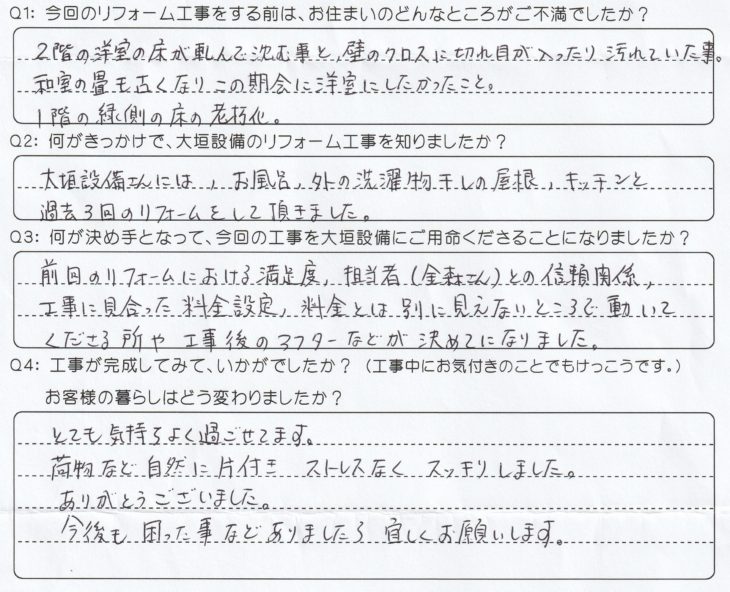 Q1: 今回のリフォーム工事をする前は、お住まいのどんなところがご不満でしたか？
2階の洋室の床が軋んで沈む事と、壁のクロスに切れ目が入ったり汚れていた事。
和室の畳も古くなりこの期会に洋室にしたかったこと。
1階の縁側の床の老朽化。
Q2: 何がきっかけで、大垣設備のリフォーム工事を知りましたか？
大垣設備さんには、お風呂、外の洗濯物干しの屋根、キッチンと
過去3回のリフォームをして頂きました。
Q3: 何が決め手となって、今回の工事を大垣設備にご用命くださることになりましたか？
前回のリフォームにおける満足度、担当者(金森さん)との信頼関係、
工事に見合った料金設定、料金とは別に見えないところで動いて
くださる所や工事後のアフターなどが決めてになりました。
Q4: 工事が完成してみて、いかがでしたか？（工事中にお気付きのことでもけっこうです。）
お客様の暮らしはどう変わりましたか？
とても気持ちよく過ごせてます。
荷物など自然に片付き ストレスなく スッキリしました。
ありがとうございました。
今後も困った事などありましたら宜しくお願いします。